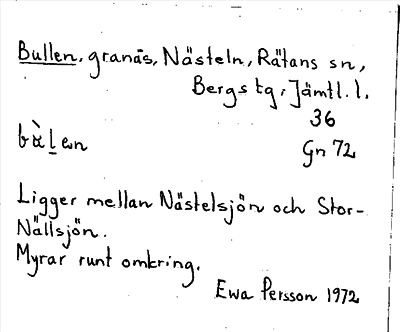 Bullen, granås, Nästeln, Rätans sn,
Bergs tg, Jämtl. l.
36
Gn 72
Ligger mellan Nästelsjön och Stor-
Nällsjön.
Myrar runt omkring.
Ewa Persson 1972